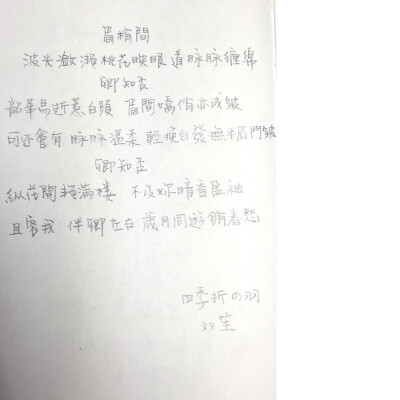 眉梢間
波光潋滟桃花映眼 道脉脉缠绵
卿知否
韶華易逝惹白頭 眉間嬌俏亦成皱
可还會有脉脉温柔 輕挽白發撫平眉間皱
卿知否
纵花開擁满楼 不及妳暗香盈袖
且宽我 伴卿左右 歲月同遊銷春愁
四季折の羽
双笙